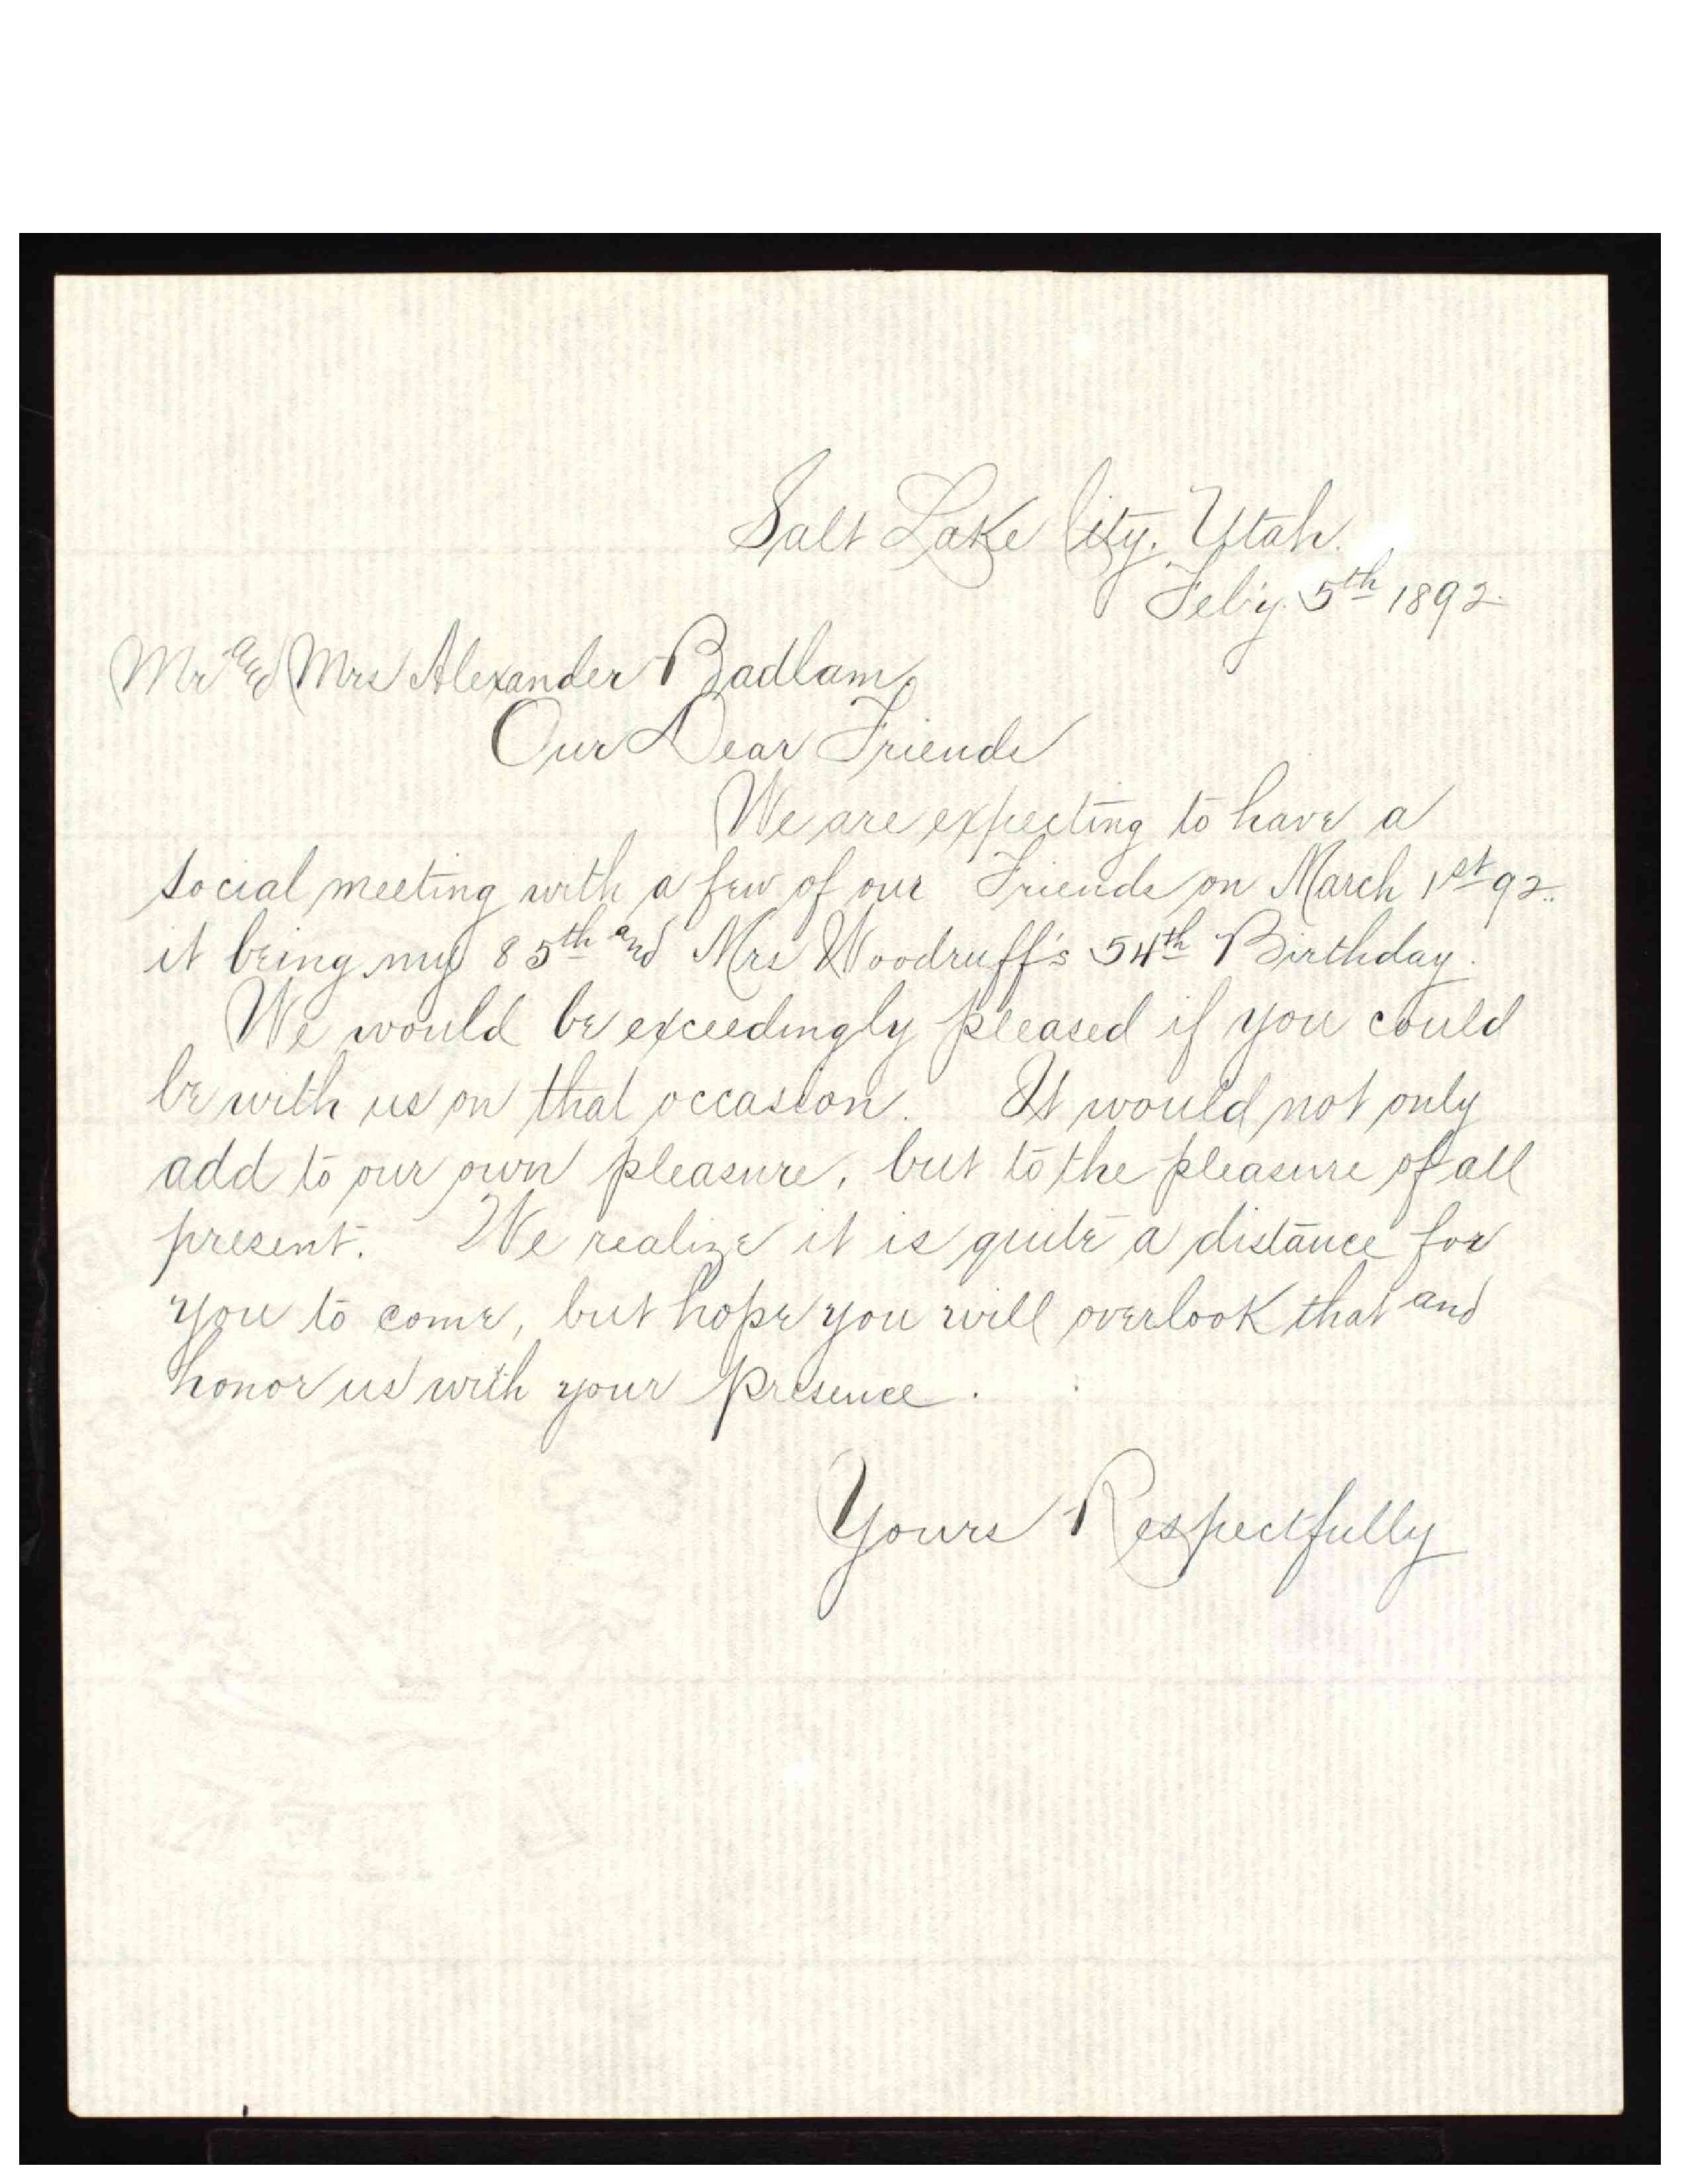 Salt Lake City, Utah.
Feb'y. 5th 1892.
Mr and Mrs Alexander Badlam,
Our Dear Friends
We are expecting to have a
social meeting with a few of our Friends on March 1st 92.
it being my 85th and Mrs Woodruff's 54th Birthday.
We would be exceedingly pleased if you could
be with us on that occasion. It would not only
add to our own pleasure, but to the pleasure of all
present. We realize it is quite a distance for
you to come, but hope you will overlook that and
honor us with your presence.
Yours Respectfully